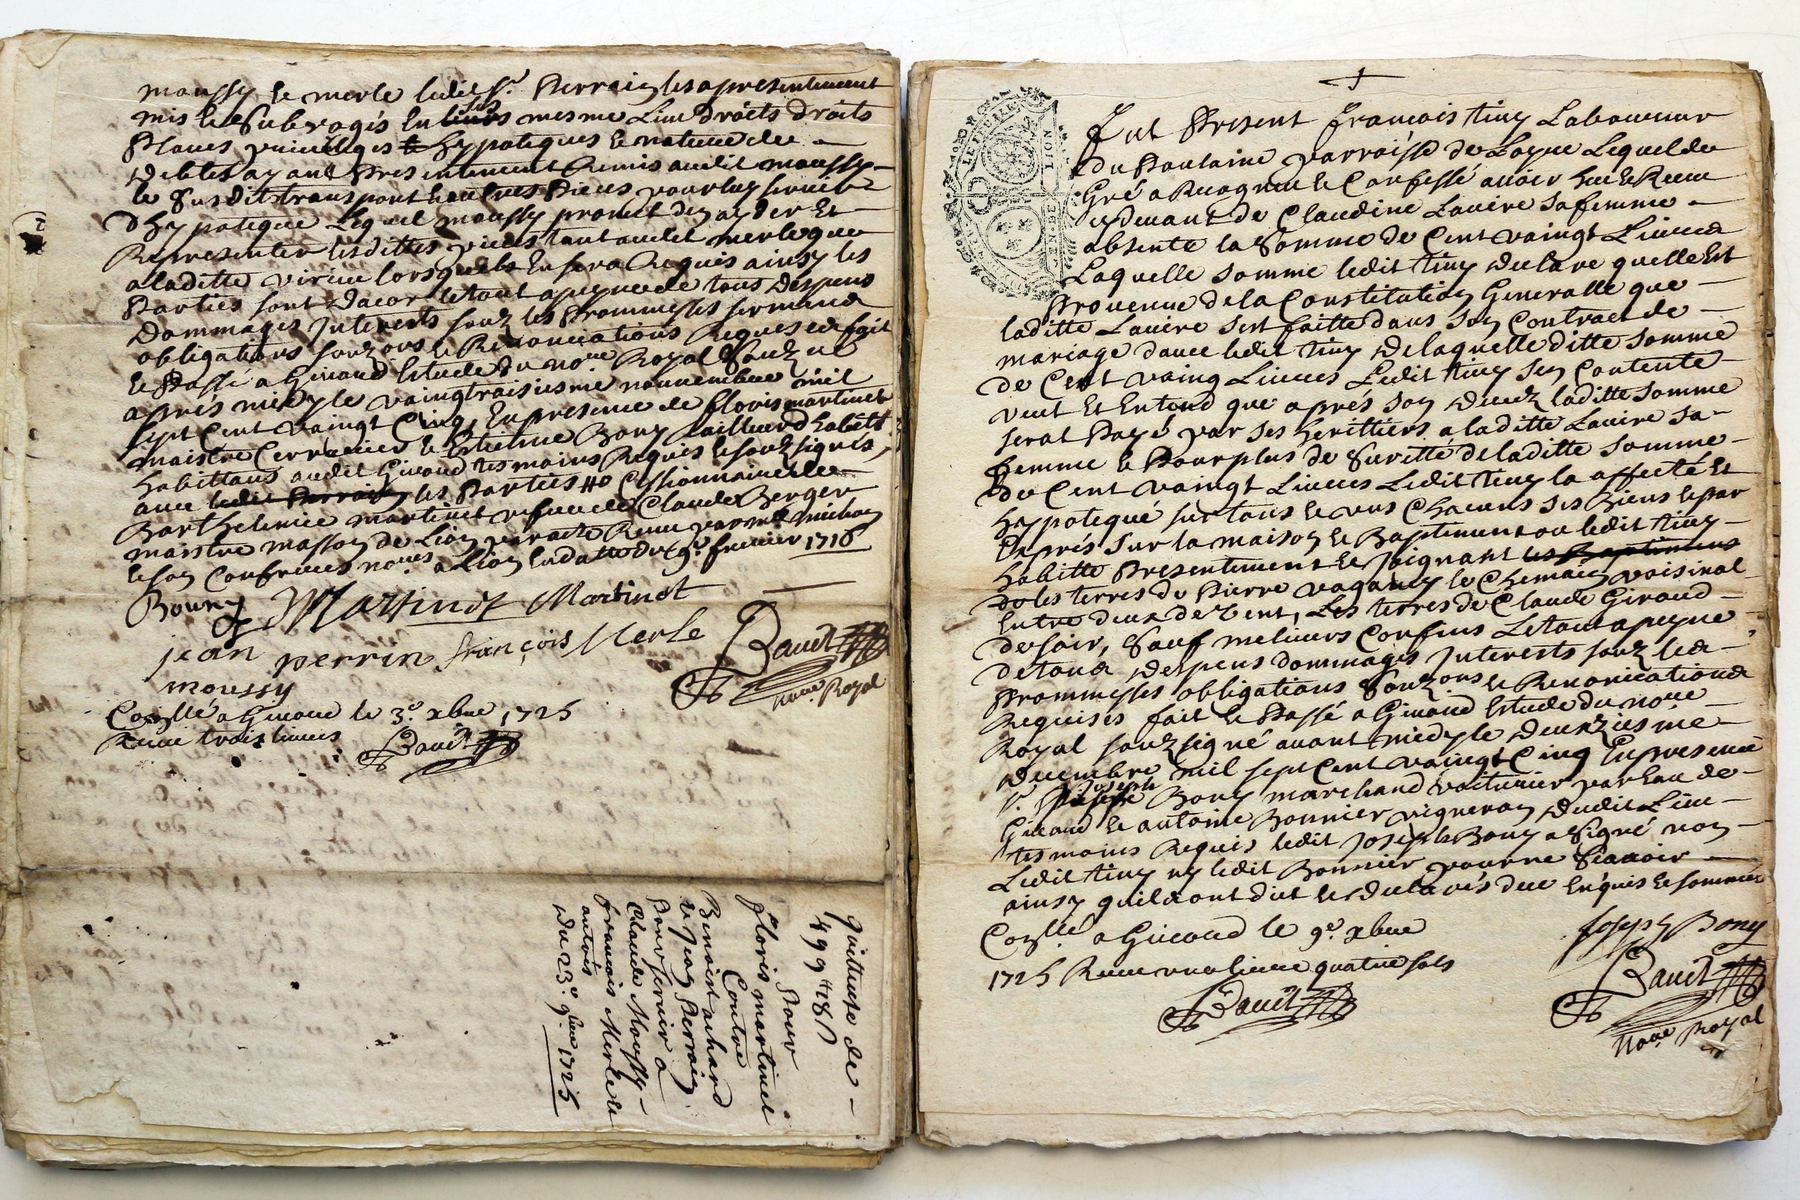 moussy et merle ledit Sr. Perrein les a presentement
mis et Subrogés en leurs mesme Lieu droits droits
Places privileges et hypoteques et nature de
debtes ayant Presentement remis audit moussy
le Susdit transport et autres Pieces pour luy servir
d'hypoteque Lequel moussy promet d'en ayder Et
Representer lesdittes pieces tant audit merle que
a laditte lorsqu'ils En sera Requis ainsy les
Parties sont d'acor le tout a peyne de tous despens
Dommages Interests souz les Promesses serments
obligations souz ons et Renonciations Requises fait
et Passé a Givord Estude du nore. Royal Souz né
aprés midy le vaingtroisiesme nouvembre mil
sept Cent vaingt Cinq En presence de floris martinet
maistre Cerrurier et Estienne Bony taillieur d'habits
habittans audit Givord tesmoins Requis et souz signés,
avec ledit Perrein les Parties Cessionnaire de
Barthelemie martinet vefve de Claude Berger
maistre masson de Lion par acte Receu par me michon
et son Confreres nores a Lion la datte du 9e. fevrier 1716
Bouny Martinet Martinet
jean perrin françois Merle
moussy
Baudt
nore. Royal
Conllé a Givord le 3e. xbre 1725
Receu trois livres
Baudt
Quittude de
499 # 18 s
Pour
floris martinet
Contre
Benoist achard
et Jean Perrein
Pour servir a
Claude Moussy
francois Merle et
autres
Du 23e. 9bre 1725
GENE DE LION
Fut Present francois tiny Laboureur
du Fontaine parroisse de Loyre Lequel de
Gré a Recogneu et Confessé avoir heu et Receu
cy devant de Claudine Lavire sa femme
absente la Somme de Cent vaingt Livres
Laquelle somme ledit tiny declare quelle Est
Provenue de la Constitution Generalle que
laditte Lavire s'est faitte dans son Contract de
mariage d'avec ledit tiny de laquelle ditte somme
de Cent vaing Livres Ledit tiny sen Contente
veut Et Entend que aprés son decez laditte somme
serat Payé par ses herittiers a laditte Lavire sa
femme et Pour plus de Suretté de laditte somme
de Cent vaingt Livres Ledit tiny la affecté et
hypotequé sur tous et uns Chacuns ses Biens et par
Exprés sur la maison et Baptiment ou ledit tiny
habitte Presentement et Joignant les Baptiments
de les terres de Pierre vaganay le Chemain voisinal
Entre deux de vent, Les terres de Claude Giraud
de soir, Sauf melieurs Confins Le tout a peyne
de tous despens dommages Interests souz les
Prommesses obligations Souz ons et Renonciations
Requises fait et Passé a Givord Estude du nore
Royal souz signé avant midy le deuxiesme
decembre mil sept Cent vaingt Cinq En presence
Sr. Joseph Bony marchand voiturier par Eau de
Givord et antoine Bonnier vigneron dudit Lieu
tesmoins Requis ledit Joseph Bony a Signé non
Ledit tiny ny ledit Bonnier pour ne Scavoir
ainsy quils ont dit et declarés de ce Enquis et sommés
Joseph Bony
Baudt
nore Royal
Conllé a Givord le 9e. xbre
1725 Receu une livre quatre sols
Baudt